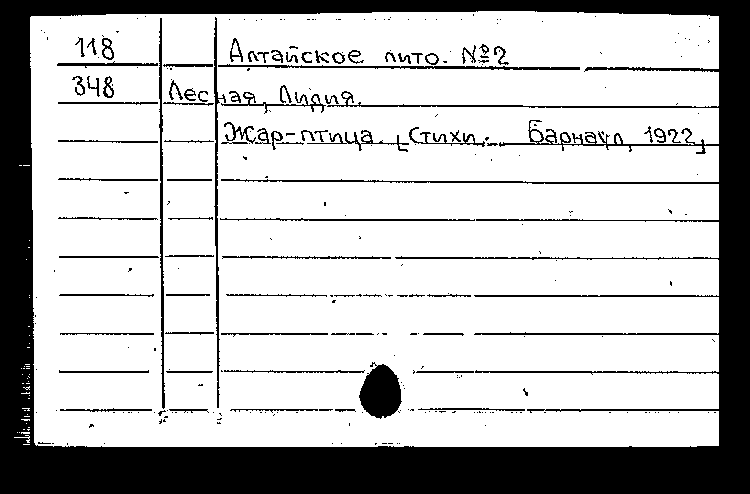 118 Алтайское лито. №2
348 Лесная, Лидия.
Жар-птица. [Стихи. Барнаул, 1922]